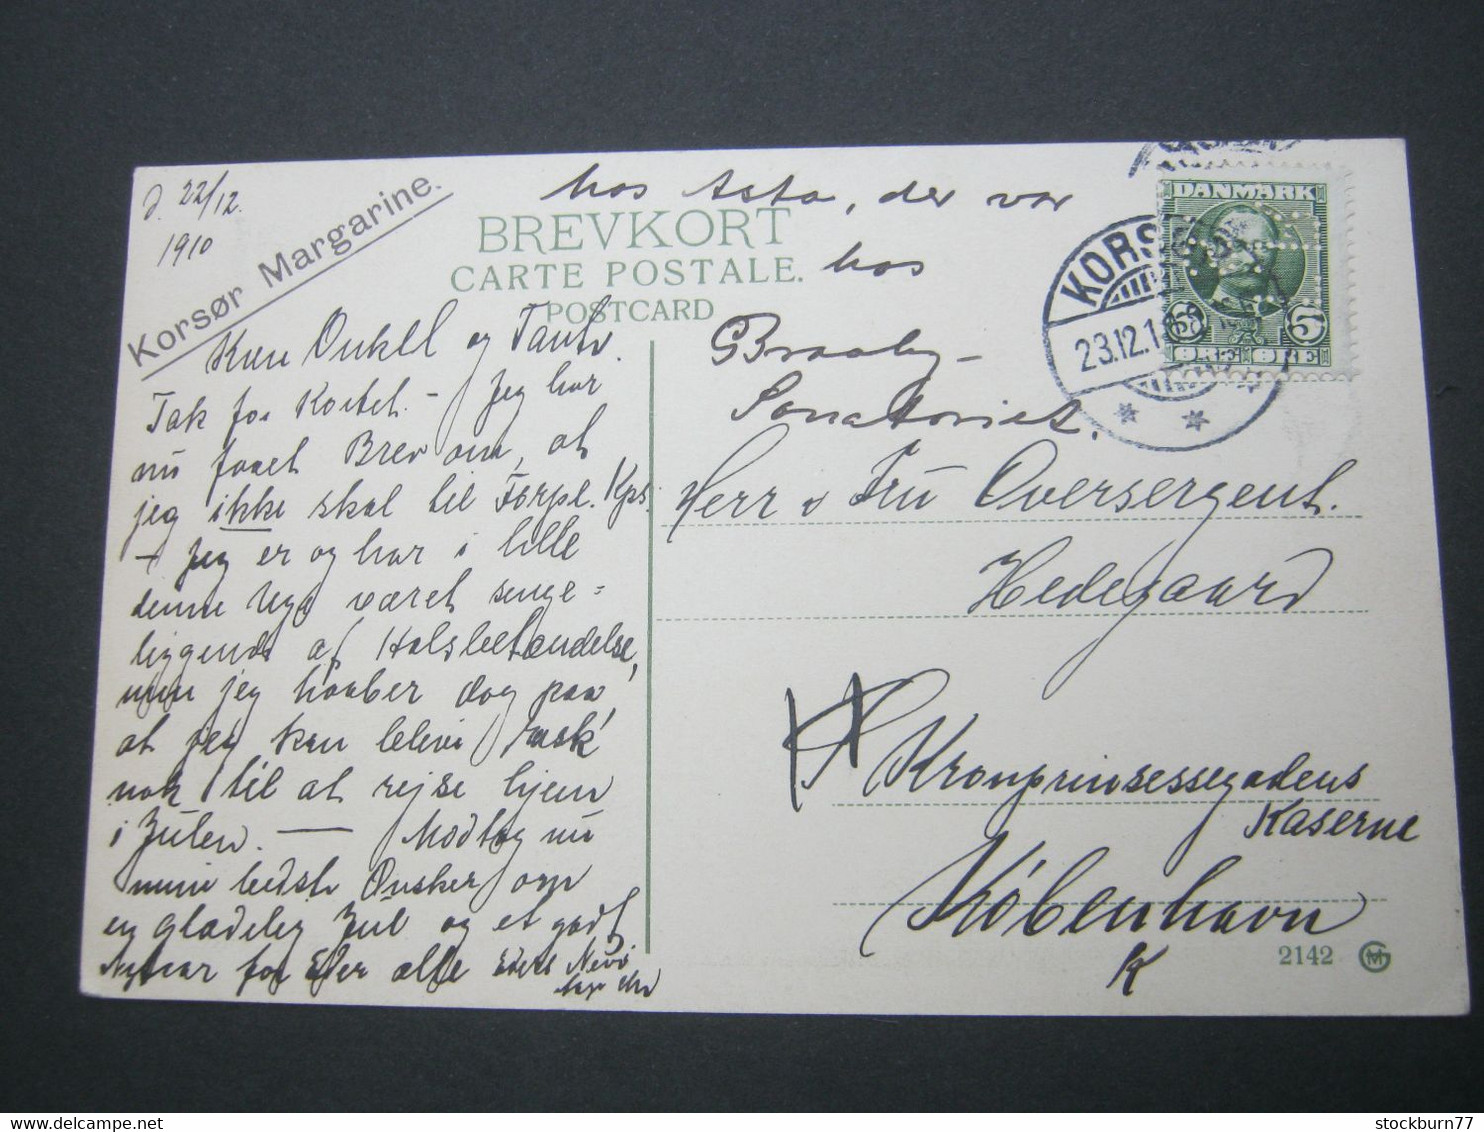 d. 22/12.
1910
Korsør Margarine.
hos Asta, der var
hos
BREVKORT
CARTE POSTALE.
POSTCARD
Kære Onkel og Tante.
Tak for Kortet. - Jeg har
nu faaet Brev om, at
jeg ikke skal til Forpl. Kps.
- Jeg er og har i hele
denne Uge været senge=
liggende af Halsbetændelse,
men jeg haaber dog paa,
at jeg kan blive rask
nok til at rejse hjem
i Julen. — Modtag nu
mine bedste Ønsker om
en glædelig Jul og et godt
Nytaar for Eder alle Eders Nevø
Braaby-
Sanatoriet.
Herr & Fru Oversergent.
Hedegaard
Kronprinsessegadens
Kaserne
København
K
KORSØR
23.12.1
DANMARK
5 5
ØRE ØRE
2142 GM
stockburn77